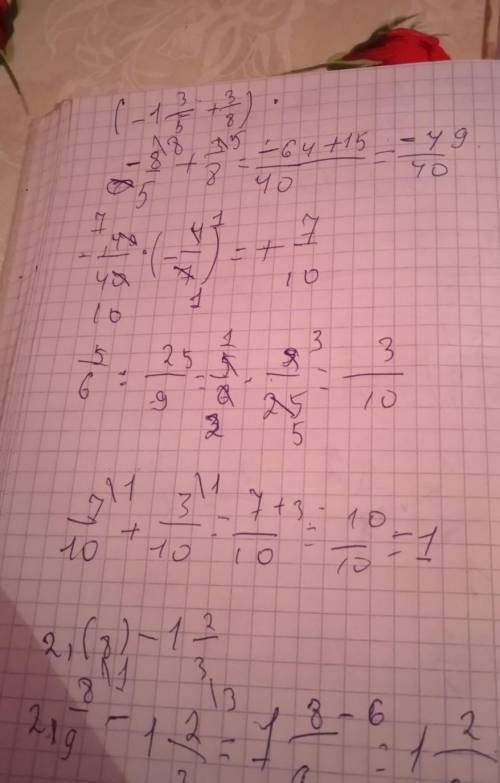 (-1 3/5 + 3/8) ·
-8/5 \8 + 3/8 \5 = (-64+15)/40 = -49/40
-49/40 · (-4/7) = + 7/10
5/6 : 25/9 = 5/6 · 9/25 = 3/10
7/10 \1 + 3/10 \1 = (7+3)/10 = 10/10 = 1
2,(8) - 1 2/3
2, 8/9 \1 - 1 2/3 \3 = 1 8-6 = 1 2